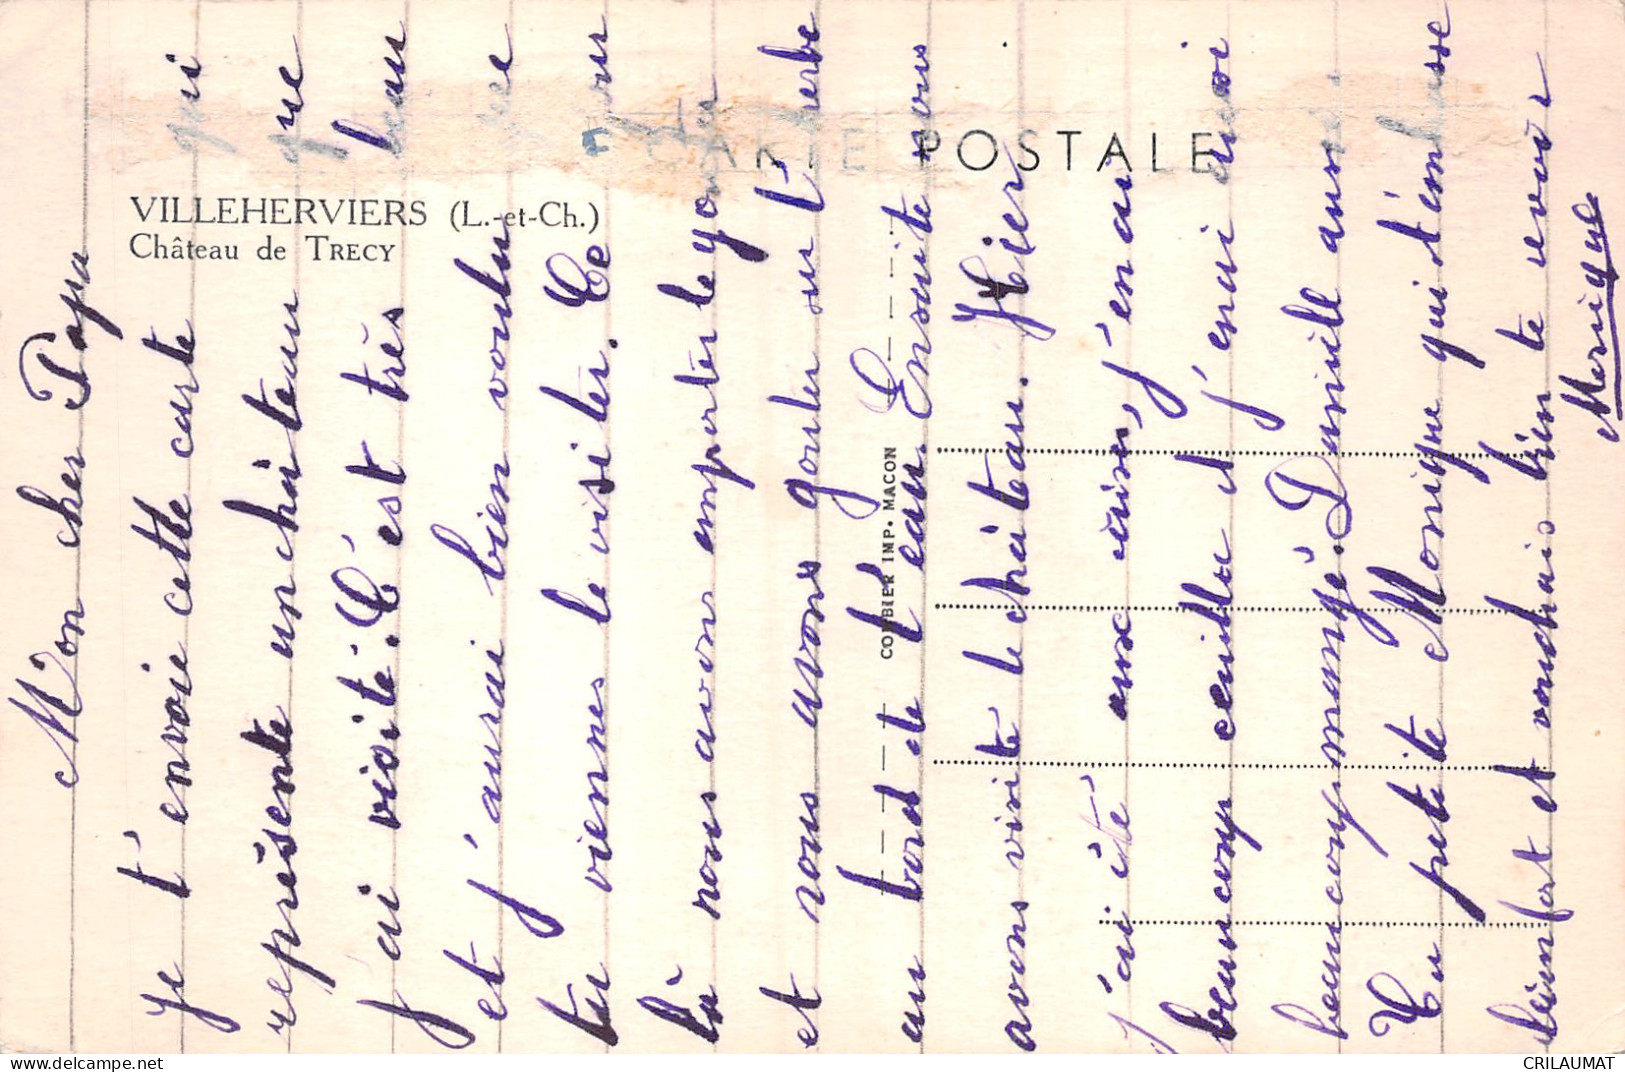 CARTE POSTALE
VILLEHERVIERS (L.-et-Ch.)
Château de TRECY
COMBIER IMP. MACON
Mon cher Papa
je t'envoie cette carte qui
représente un château que
j'ai visité. C'est très beau
et j'aurai bien voulu que
tu viennes le visiter. Ce jour
là nous avons emporter le
et nous avons gouter sur l'herbe
au bord de l'eau. Ensuite nous
avons visité le château. Hier
j'ai été aux j'en ai
beaucoup ceuillie et j'en ai aussi
beaucoup mangé. Danielle aussi
Ta petite Monique qui t'embrasse
bien fort et voudrais bien te revoir
Monique
www.delcampe.net
CRILAUMAT